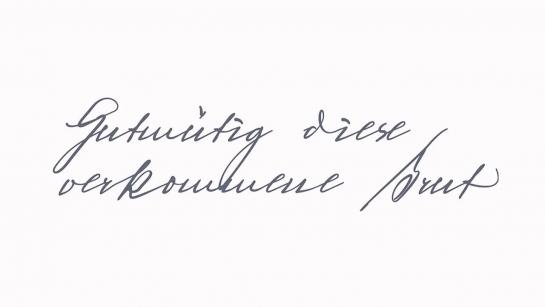 Gutmütig diese
verkommene Brut